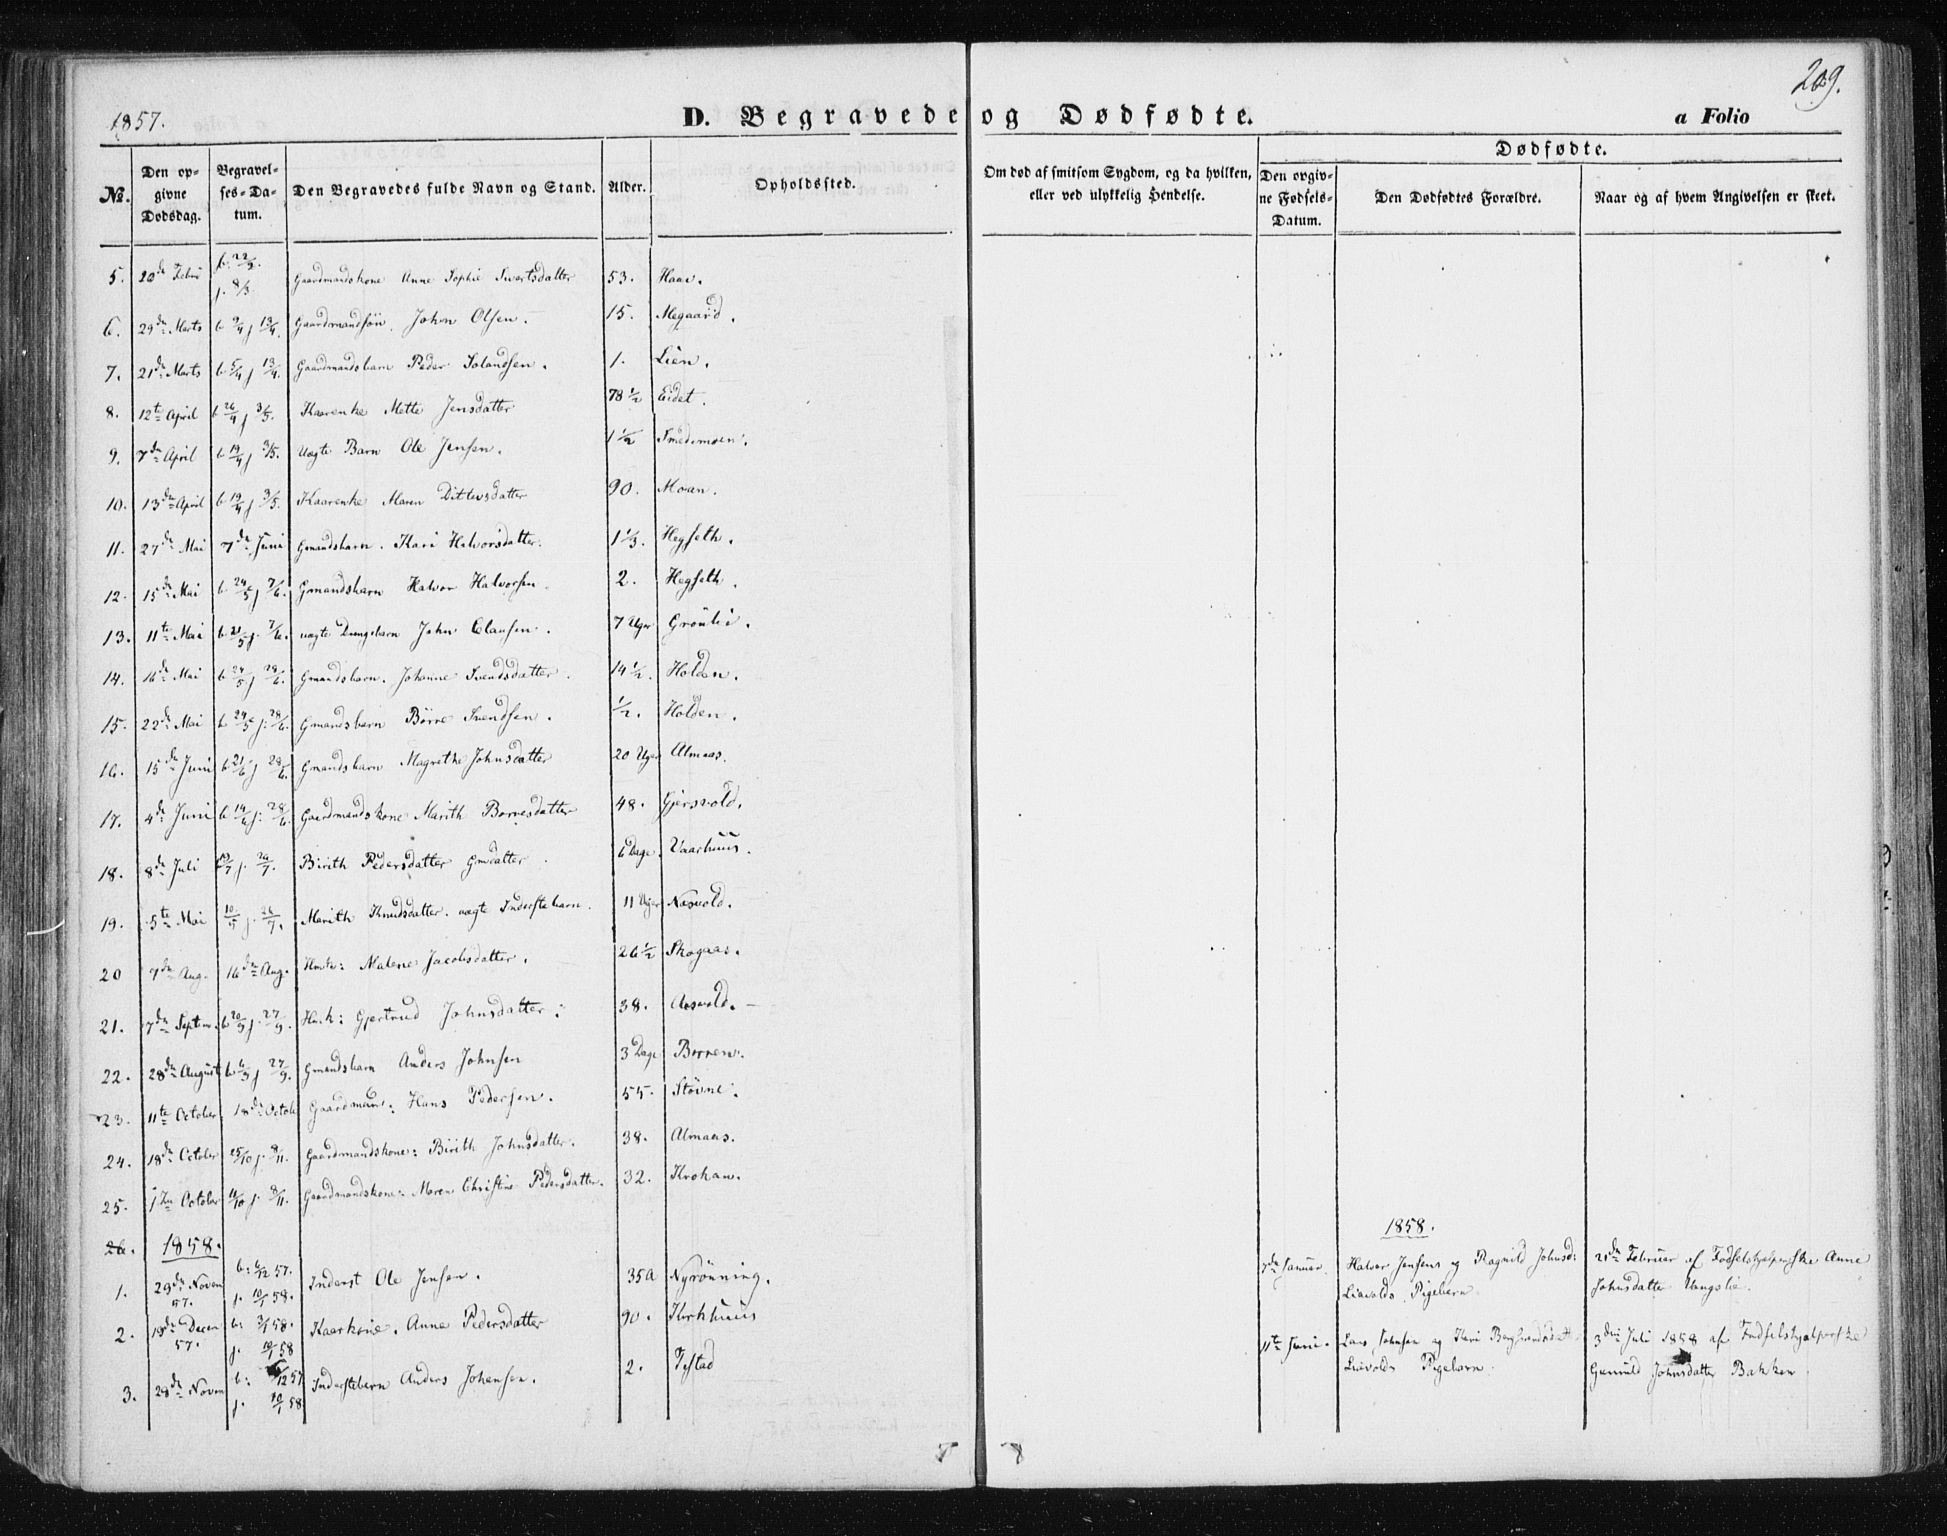 1857.
D. Begravede og Dødfødte.
a Folio
209.
Dødfødte.
№.
Den opgivne Dødsdag.
Begravelses-Datum.
Den Begravedes fulde Navn og Stand.
Alder.
Opholdssted.
Om død af smitsom Sygdom, og da hvilken, eller ved ulykkelig Hendelse.
Den opgivne Fødsels-Datum.
Den Dødfødtes Forældre.
Naar og af hvem Angivelsen er skeet.
5. 20de Febr b. 22/2. j. 8/3 Gaardmandskone Anne Sophie Sivertsdatter 53. Haav.
6. 29de Marts b 9/4 j 13/4. Gaardmandssøn John Olsen. 15. Megaard.
7. 21de Marts b 5/4 j 13/4. Gaardmandsbarn Peder 1. Lien.
8. 12te April b 26/4 j 3/5. Kaarenke Mette Jensdatter 78 1/2 Eidet.
9. 7de April b 19/4 j 3/5. Uægte Barn Ole Jensen. 1 1/2 Smedmoen.
10. 13de April b 19/4 j 3/5. Kaarenke Maren Ditlevsdatter 90. Moan.
11. 27de Mai 7de Juni Gmandsbarn. Kari Halvorsdatter. 1 1/3. Hegseth.
12. 15de Mai b 24/5 j 7/6. Gmandsbarn Halvor Halvorsen. 2. Hegseth.
13. 11te Mai b 21/5 j. 7/6. uægte John Clausen. 7 Uger Grønli.
14. 16de Mai b 24/5 j 28/6. Gmandsbarn. Johanne Svendsdatter. 14 1/2. Holden.
15. 22de Mai b 24/5 j: 28/6. Gmandsbarn Børre Svendsen. 1/2. Holden.
16. 15de Juni b 21/6 j 28/6. Gmandsbarn Magrethe Johnsdatter 20 Uger Almaas.
17. 4de Juni b 14/6 j: 28/6. Gaardmandskone Marith Børresdatter 48. Gjersvold.
18. 8de Juli j. 26/7. Birith Pedersdatter Gmdatter. 6 Dage. Vaarhuus.
19. 5te Mai 10/5 j. 26/7. Marith Knudsdatter. uægte Inderstebarn. 11 Uger Næsvold.
20 9de Aug. 16de Aug. Hmk: Malene Jacobsdatter. 26 1/2 Skogaas.
21. 7de Septem. b 20/9 j. 27/9. Hmk: Gjertrud Johnsdatter: 38. Aasvold.
22. 28de August b 6/9 j 27/9. Gmandsbarn Anders Johnsen 3 Dage Borren.
23. 11te October 18de Octob Gaardmand: Hans Pedersen. 55. Støvne.
24. 18de October 25/10 j. 8/11. Gaardmandskone: Birith Johnsdatter. 38. Almaas.
25. 1ste October 11/10 j. 8/11. Gaardmandskone: Maren Christine Pedersdatter. 32. Krohan.
26. 1858.
1858.
1. 29de Novem 57. b: 6/12 57. j. 10/1 58. Inderst Ole Jensen. 35 A Nyrønning.
7de Januar. Halvor Jensens og Ragnild Johnsd: Liavolds Pigebarn. 21de Februar af Fødselshjelperske Anne Johnsdatter Vangslie.
2. 19de Decem 57. b: 3/1 58. j. 10/1 58 Kaarkone. Anne Pedersdatter 90. Kirkhuus
11te Juni. Lars Johnsen og Kari Liavolds Pigebarn. 3die Juli 1858 af Fødselshjelperske Gunnild Johnsdatter Bakken
3. 28de Novem b: 6/12 57. j. 10/1 58 Inderstebarn Anders Johansen. 2.